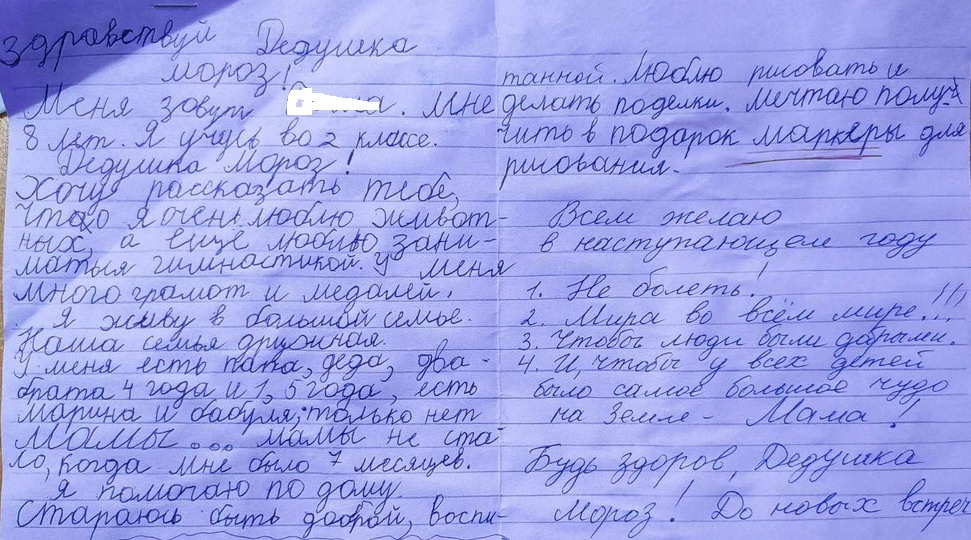 Здравствуй Дедушка
Мороз!
Меня зовут . Мне
8 лет. Я учусь во 2 классе.
Дедушка Мороз!
Хочу рассказать тебе,
что я очень люблю живот-
ных, а ещё люблю зани-
маться гимнастикой. У меня
много грамот и медалей.
Я живу в большой семье.
Наша семья дружная.
У меня есть папа, деда, два
брата 4 года и 1,5 года, есть
Марина и бабуля, только нет
МАМЫ... мамы не ста-
ло, когда мне было 7 месяцев.
Я помогаю по дому.
Стараюсь быть доброй, воспи-
танной. Люблю рисовать и
делать поделки. Мечтаю полу-
чить в подарок маркеры для
рисования.
Всем желаю
в наступающем году
1. Не болеть!
2. Мира во всём мире!!!
3. Чтобы люди были добрыми.
4. И, чтобы у всех детей
было самое большое чудо
на Земле - Мама!
Будь здоров, Дедушка
Мороз! До новых встреч